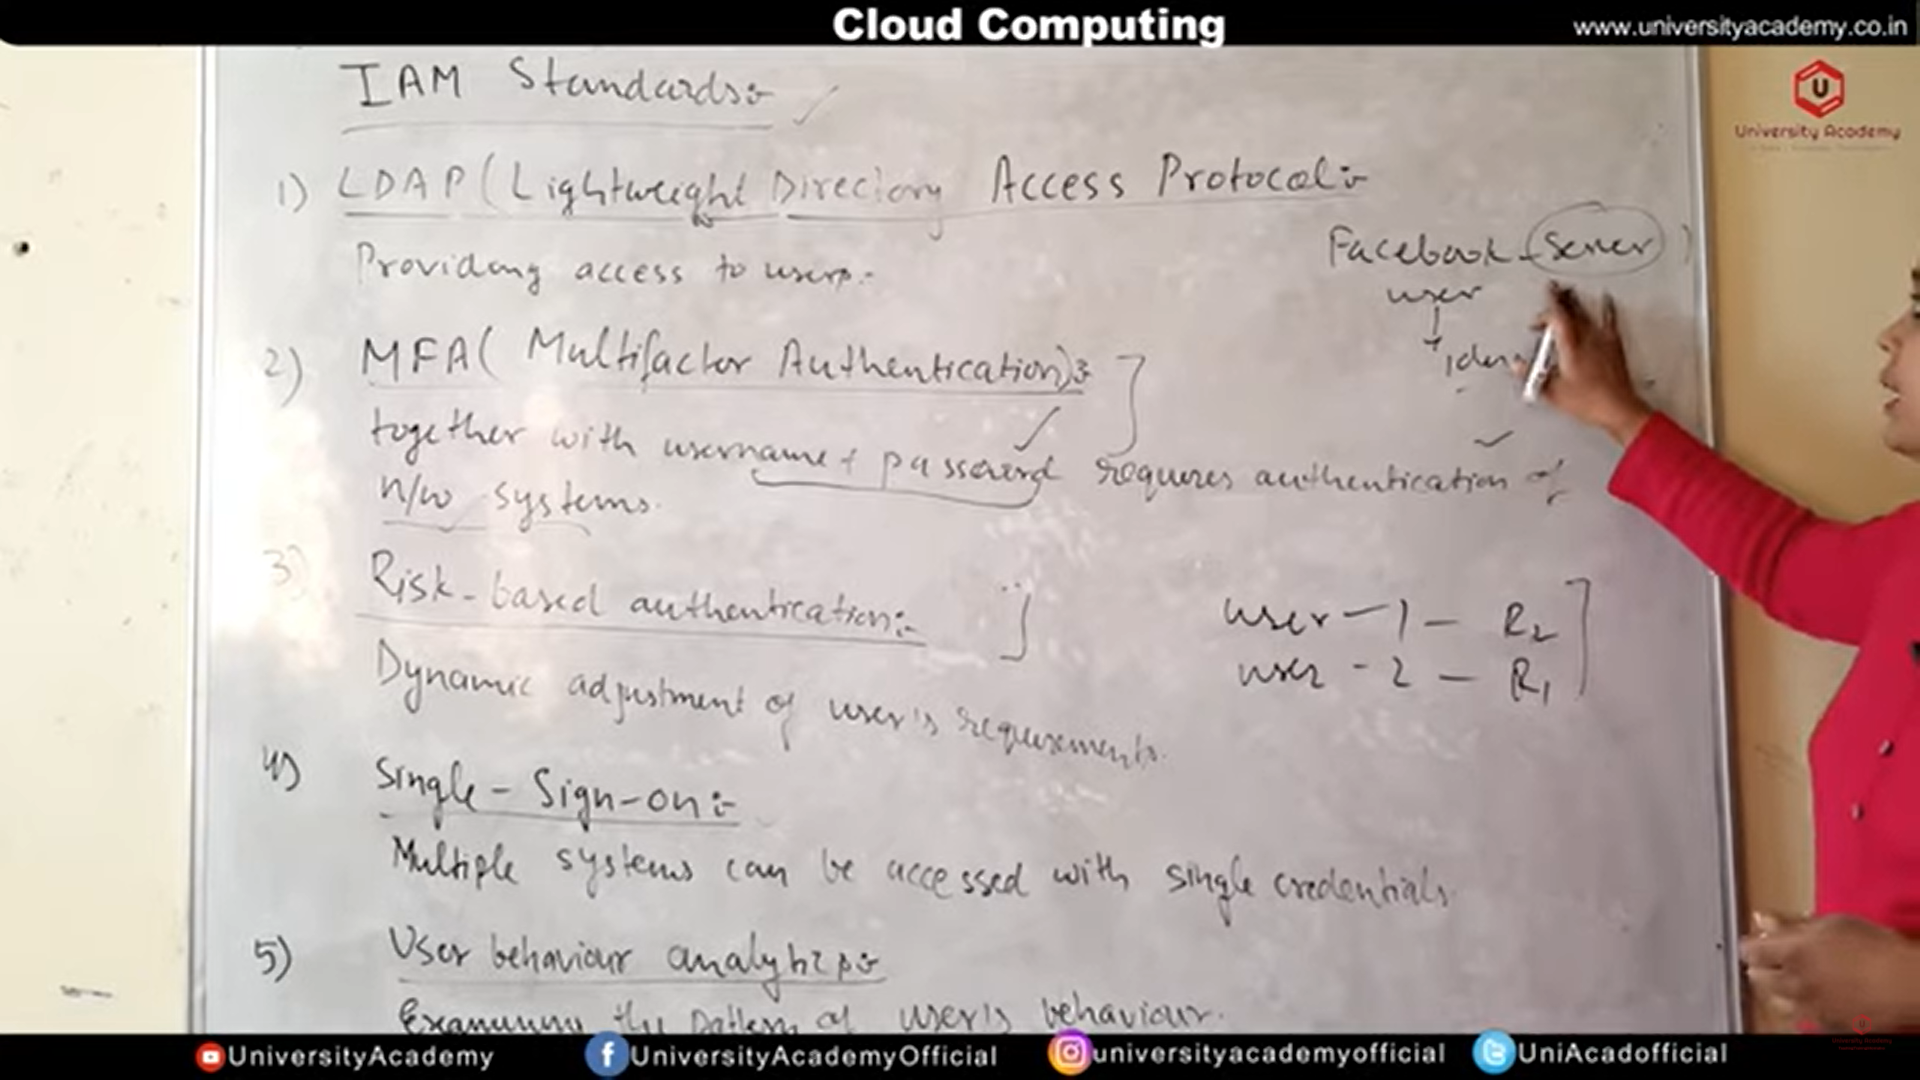 Cloud Computing
www.universityacademy.co.in
U
University Academy
IAM Standards:-
1) LDAP (Lightweight Directory Access Protocol:-
Providing access to users.
Facebook - Server
user
2) MFA (Multifactor Authentication):
together with username + password requires authentication of
n/w systems.
3) Risk-based authentication:-
Dynamic adjustment of user's requirements.
user - 1 - R2
user - 2 - R1
4) Single-Sign-on:-
Multiple systems can be accessed with single credentials.
5) User behaviour analytics:-
Examining the pattern of user's behaviour.
UniversityAcademy
UniversityAcademyOfficial
universityacademyofficial
UniAcadofficial